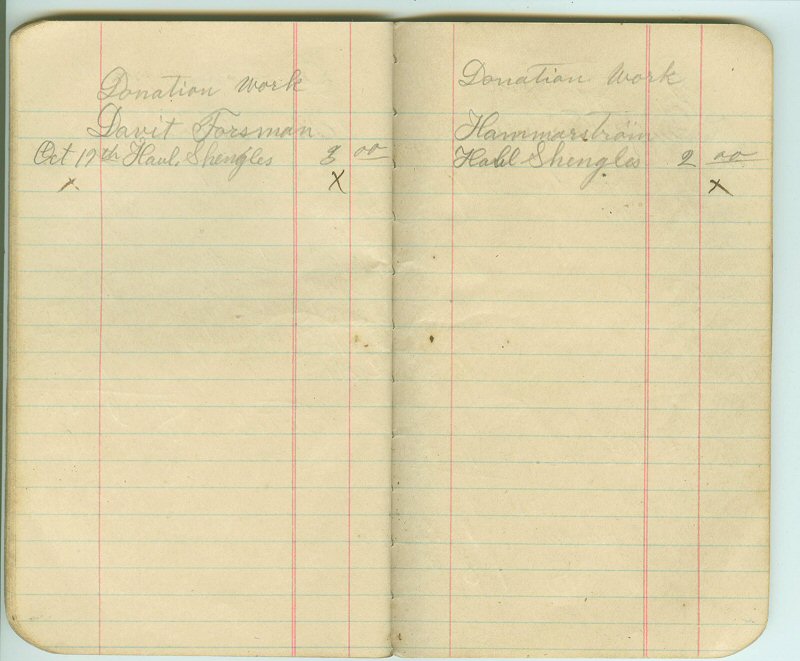 Donation Work
Davit Forsman
Oct 17th Haul Shengles 3 00
x X
Donation Work
Hammarström
Haul Shengles 2 00
x